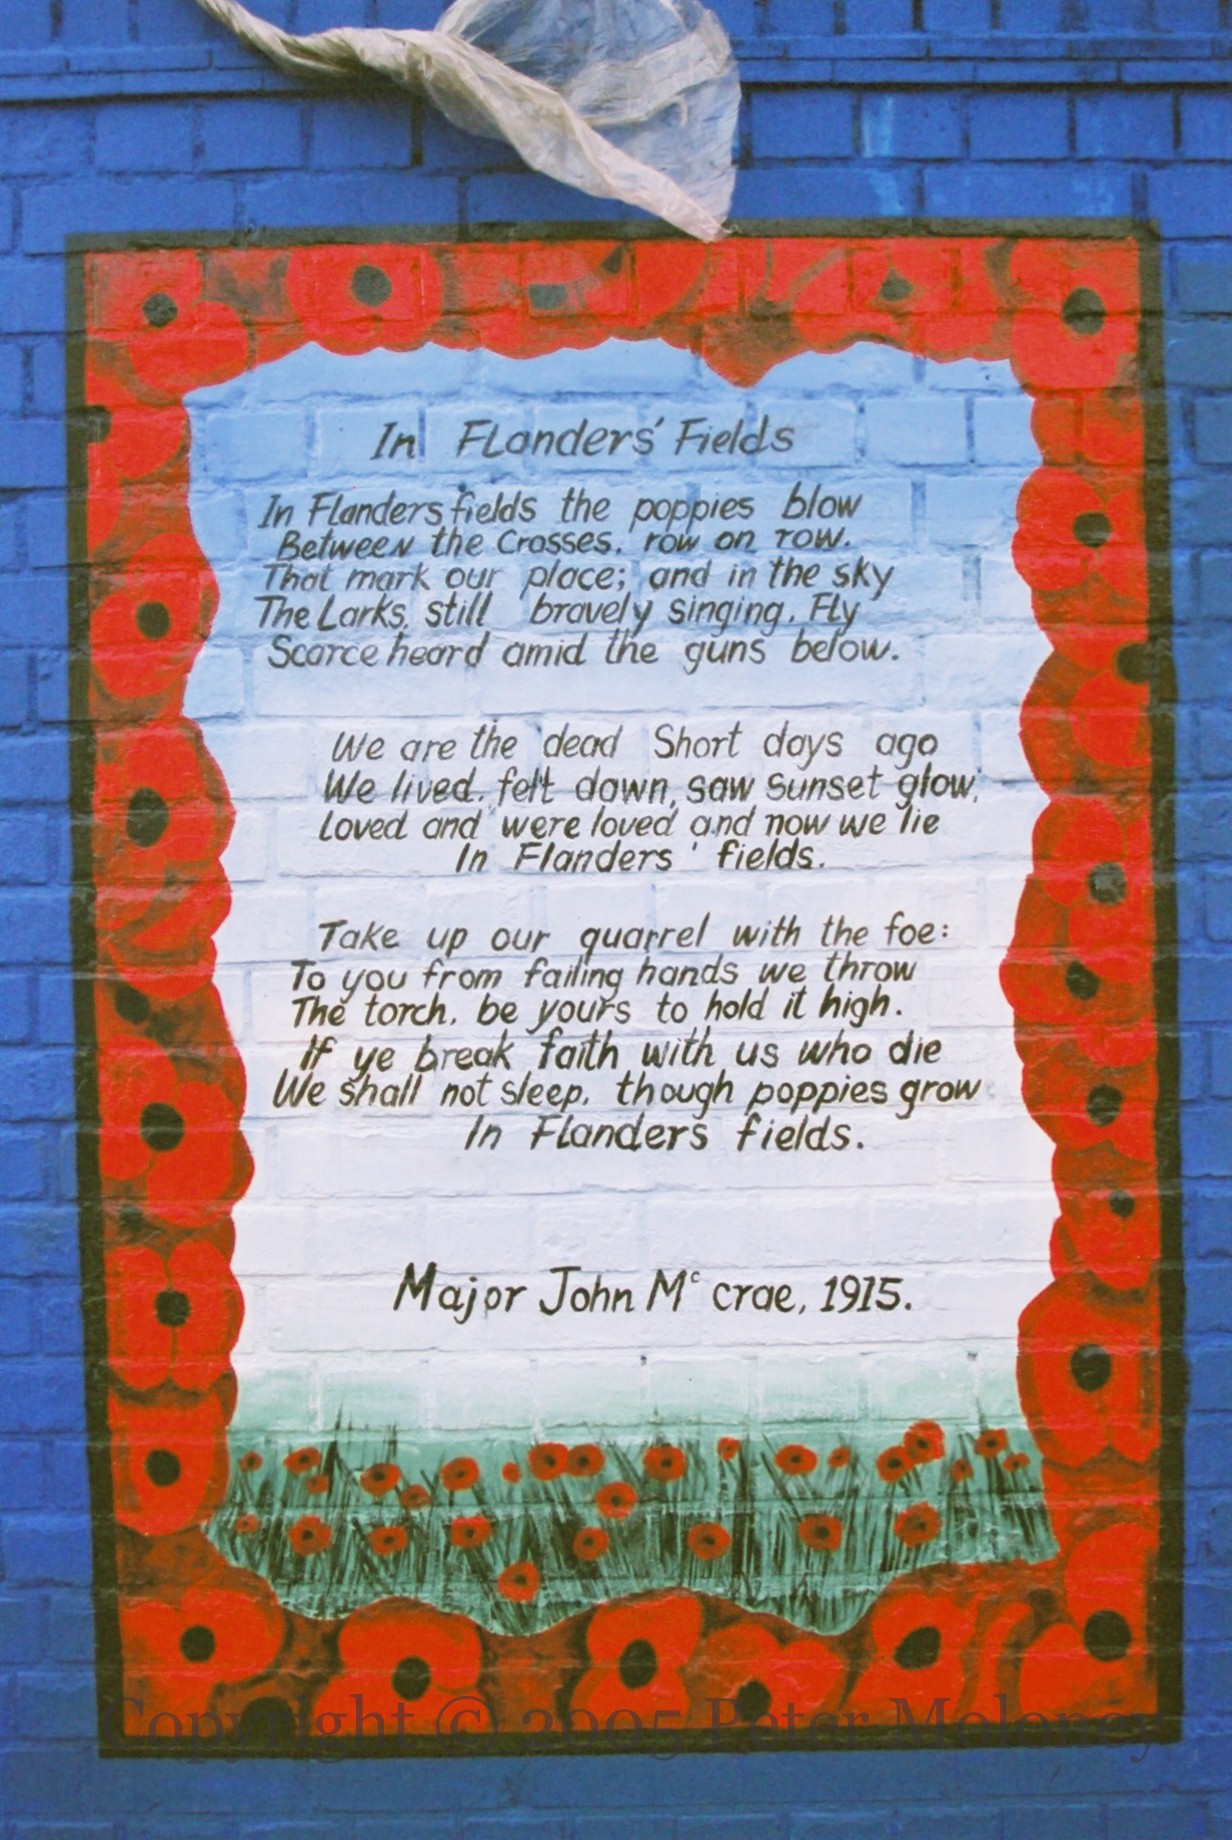 In Flanders' Fields
In Flanders fields the poppies blow
Between the Crosses, row on row.
That mark our place; and in the sky
The Larks, still bravely singing, Fly
Scarce heard amid the guns below.
We are the dead Short days ago
We lived, felt dawn, saw sunset glow,
Loved and were loved and now we lie
In Flanders ' fields.
Take up our quarrel with the foe:
To you from failing hands we throw
The torch, be yours to hold it high.
If ye break faith with us who die
We shall not sleep, though poppies grow
In Flanders fields.
Major John Mc crae, 1915.
Copyright © 2005 Peter Moloney